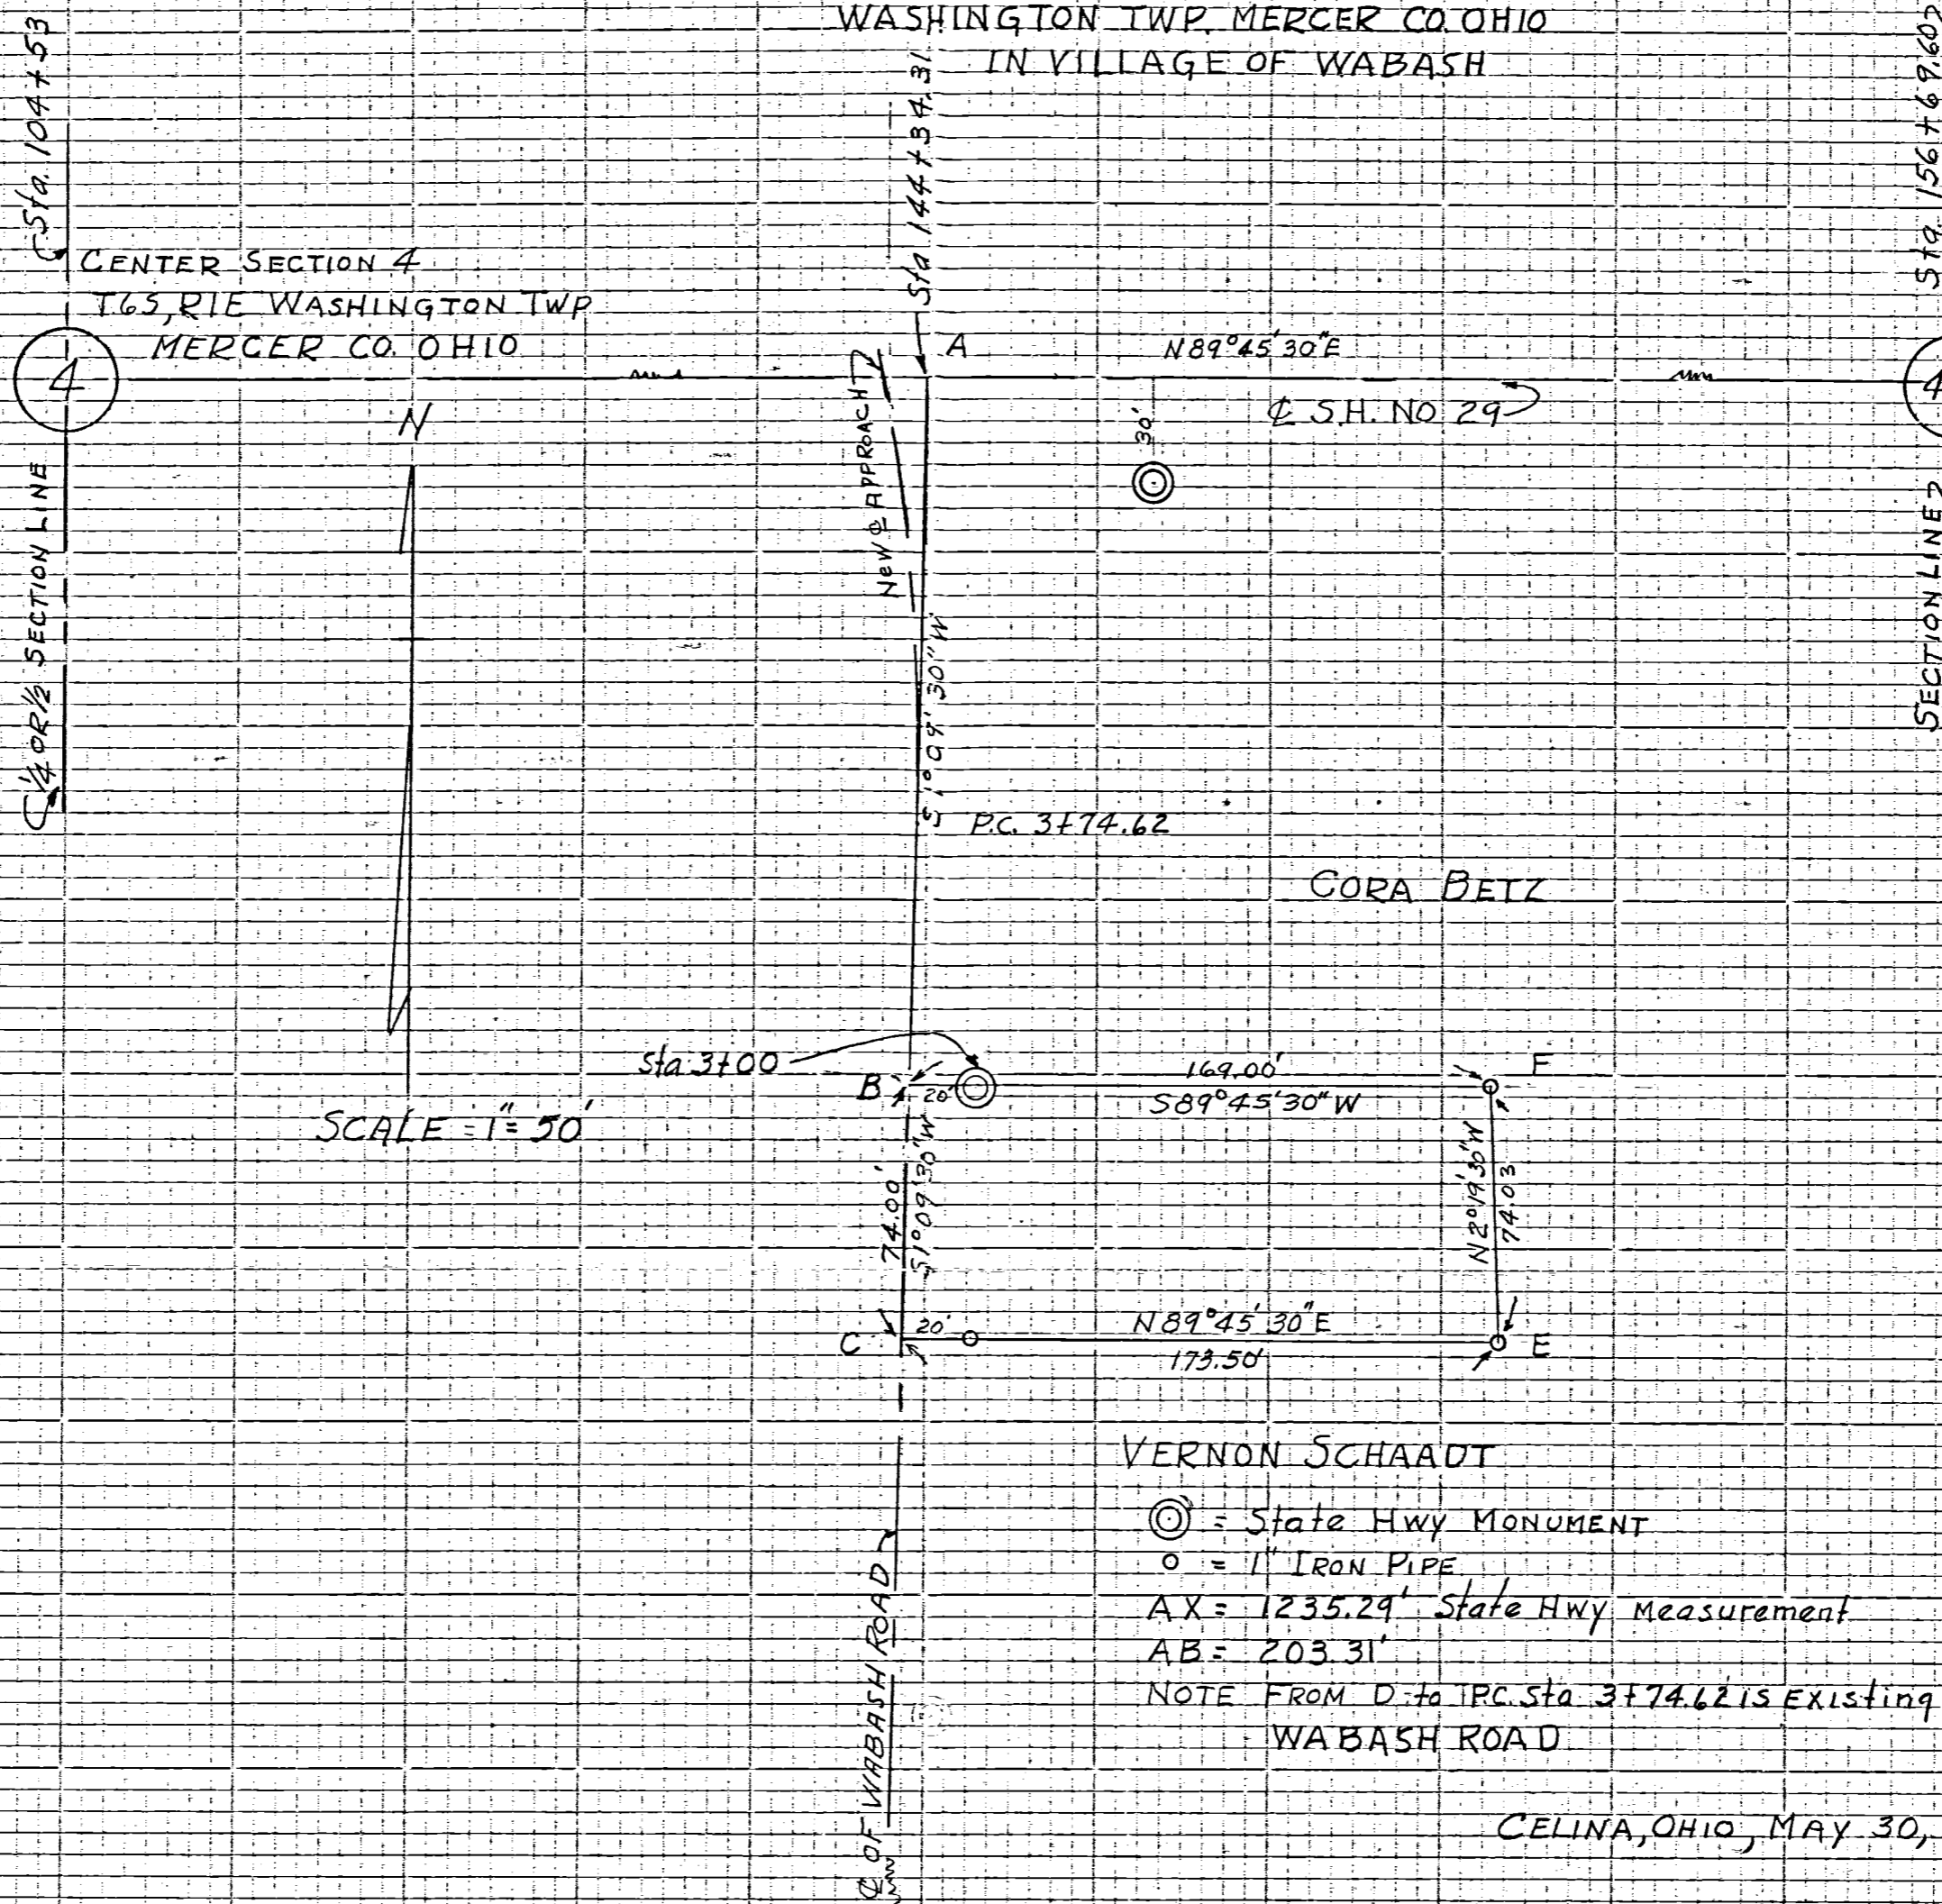 WASHINGTON TWP. MERCER CO. OHIO
IN VILLAGE OF WABASH
Sta. 104+53
Sta 144+34.31
Sta. 156+69.60
CENTER SECTION 4
T6S, R1E WASHINGTON TWP
MERCER CO. OHIO
4
A
N89°45'30"E
4
N
℄ S.H. NO 29
30'
NEW ℄ APPROACH
1/4 OR 1/2 SECTION LINE
SECTION LINE
S1°09'30"W
P.C. 3+74.62
CORA BETZ
Sta. 3+00
B
20'
169.00'
S89°45'30"W
F
SCALE = 1" = 50'
74.00'
S1°09'30"W
N2°19'30"W
74.03
C
20'
N89°45'30"E
173.50'
E
VERNON SCHAADT
◎ = State Hwy MONUMENT
o = 1" IRON PIPE
AX = 1235.29' State Hwy Measurement
AB = 203.31'
NOTE FROM D to P.C. Sta 3+74.62 is Existing
WABASH ROAD
℄ OF WABASH ROAD
CELINA, OHIO, MAY 30,